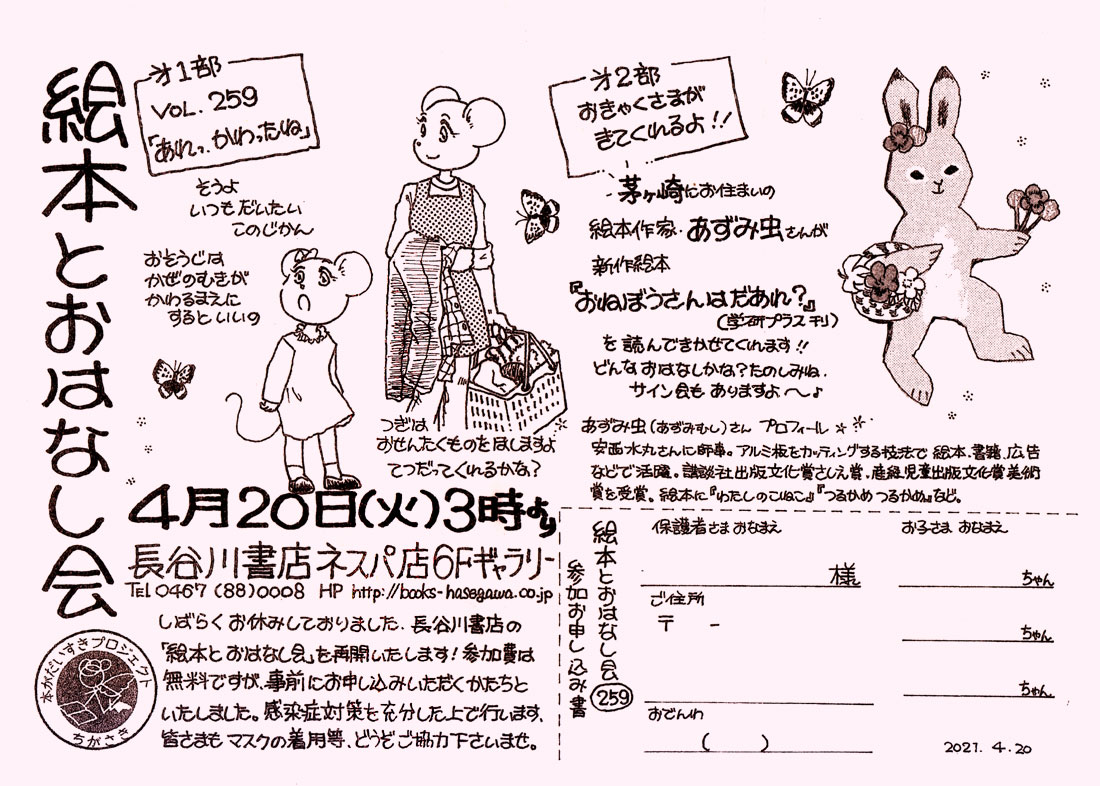 絵本とおはなし会
第1部
VOL. 259
「あれっ、かわったね」
そうよ
いつもだいたい
このじかん
おそうじは
かぜのむきが
かわるまえに
するといいの
つぎは
おせんたくものをほしますよ
てつだってくれるかな?
第2部
おきゃくさまが
きてくれるよ!!
茅ヶ崎にお住まいの
絵本作家・あずみ虫さんが
新作絵本
『おねぼうさんはだあれ?』
(学研プラス刊)
を読んできかせてくれます!!
どんなおはなしかな?たのしみね。
サイン会もありますよ〜♪
あずみ虫(あずみむし)さん プロフィール☆☆
安西水丸さんに師事。アルミ板をカッティングする技法で絵本、書籍、広告
などで活躍。講談社出版文化賞さしえ賞、産経児童出版文化賞美術
賞を受賞。絵本に『わたしのこねこ』『つるかめつるかめ』など。
4月20日(火)3時より
長谷川書店ネスパ店6Fギャラリー
TEL 0467 (88)0008 HP http://books-hasegawa.co.jp
しばらくお休みしておりました、長谷川書店の
「絵本とおはなし会」を再開いたします!参加費は
無料ですが、事前にお申し込みいただくかたちと
いたしました。感染症対策を充分した上で行います、
皆さまもマスクの着用等、どうぞご協力下さいませ。
本がだいすきプロジェクト
ちがさき
絵本とおはなし会 259
参加お申し込み書
保護者さまおなまえ
様
ご住所
〒 -
おでんわ
( )
お子さまおなまえ
ちゃん
ちゃん
ちゃん
2021. 4. 20